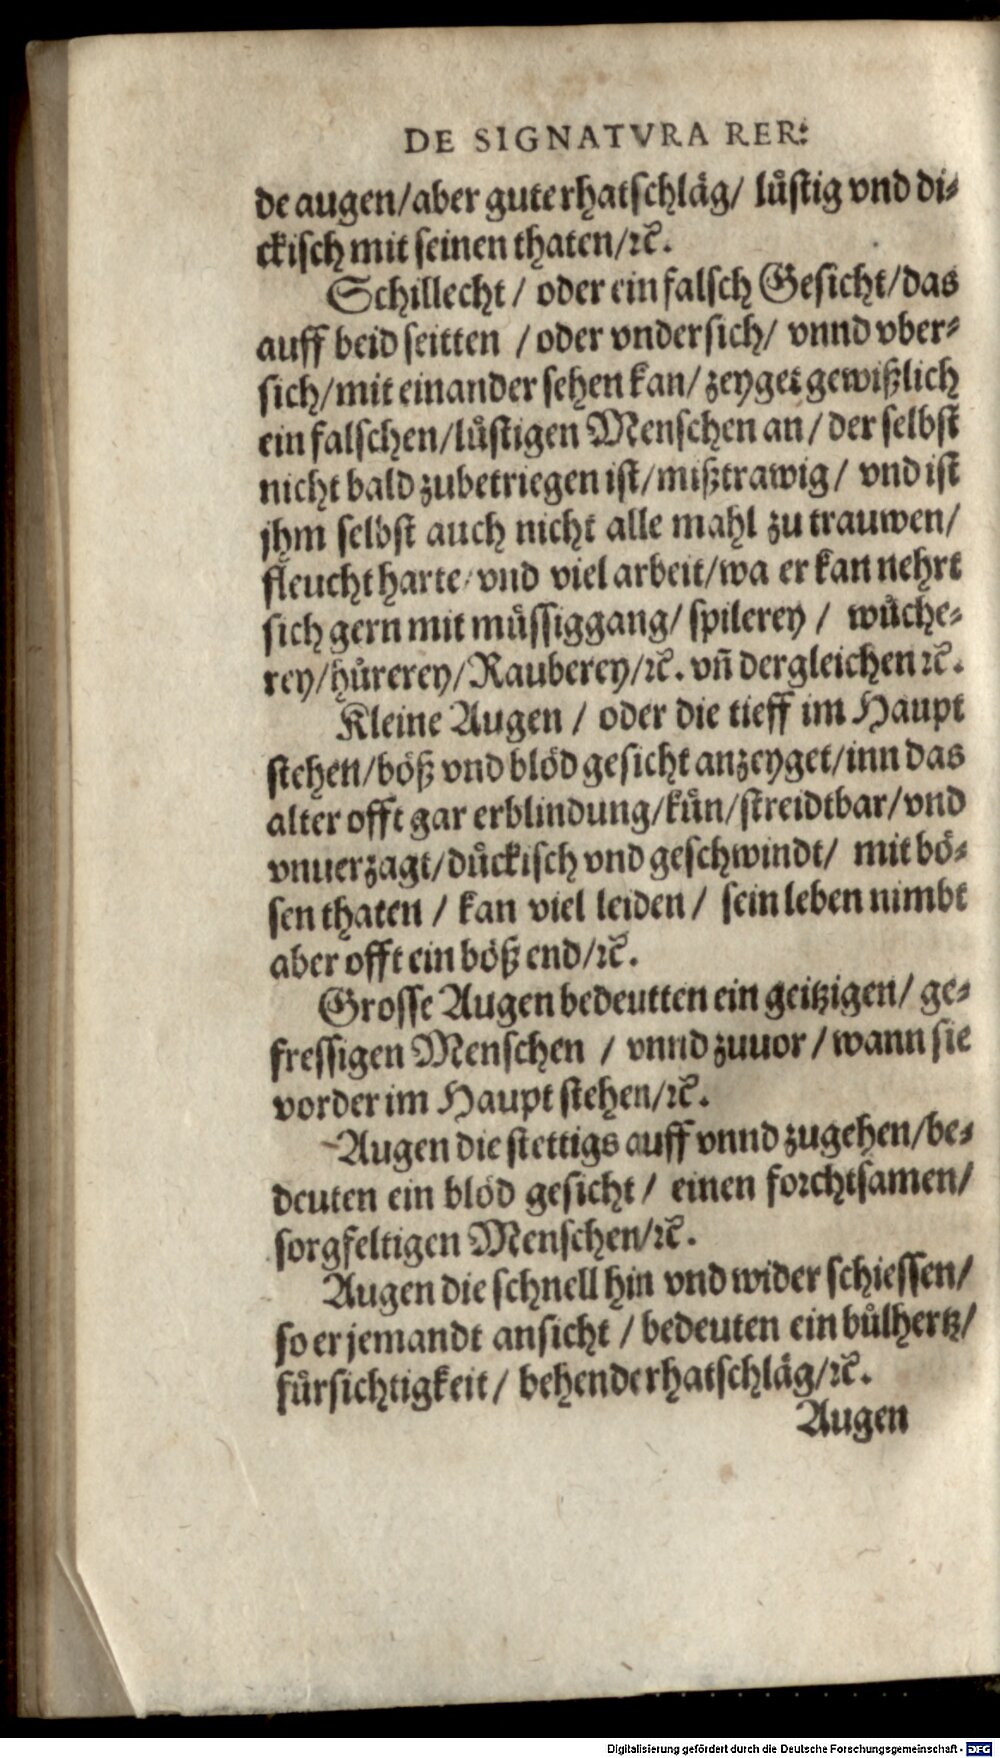 DE SIGNATVRA RER:
de augen/aber gute rhatschläg/ lůstig vnd di⸗
ckisch mit seinen thaten/ꝛc̃.
Schillecht / oder ein falsch Gesicht/das
auff beid seitten / oder vndersich/ vnnd vber⸗
sich/mit einander sehen kan/ zeyget gewißlich
ein falschen/lůstigen Menschen an / der selbst
nicht bald zubetriegen ist/mißtrawig/ vnd ist
jhm selbst auch nicht alle mahl zu trauwen/
fleucht harte/ vnd viel arbeit/wa er kan nehrt
sich gern mit müssiggang/ spilerey / wůche⸗
rey/hůrerey/Rauberey/ꝛc̃. vñ dergleichen ꝛc̃.
Kleine Augen / oder die tieff im Haupt
stehen/böß vnd blöd gesicht anzeyget/inn das
alter offt gar erblindung/kůn/streidtbar/vnd
vnuerzagt/důckisch vnd geschwindt/ mit bö⸗
sen thaten / kan viel leiden / sein leben nimbt
aber offt ein böß end/ꝛc̃.
Grosse Augen bedeutten ein geitzigen/ ge⸗
fressigen Menschen / vnnd zuuor / wann sie
vorder im Haupt stehen/ꝛc̃.
Augen die stettigs auff vnnd zugehen/be⸗
deuten ein blöd gesicht / einen forchtsamen/
sorgfeltigen Menschen/ꝛc̃.
Augen die schnell hin vnd wider schiessen/
so er jemandt ansicht / bedeuten ein bůlhertz/
fůrsichtigkeit / behende rhatschläg/ꝛc̃.
Augen
Digitalisierung gefördert durch die Deutsche Forschungsgemeinschaft - DFG